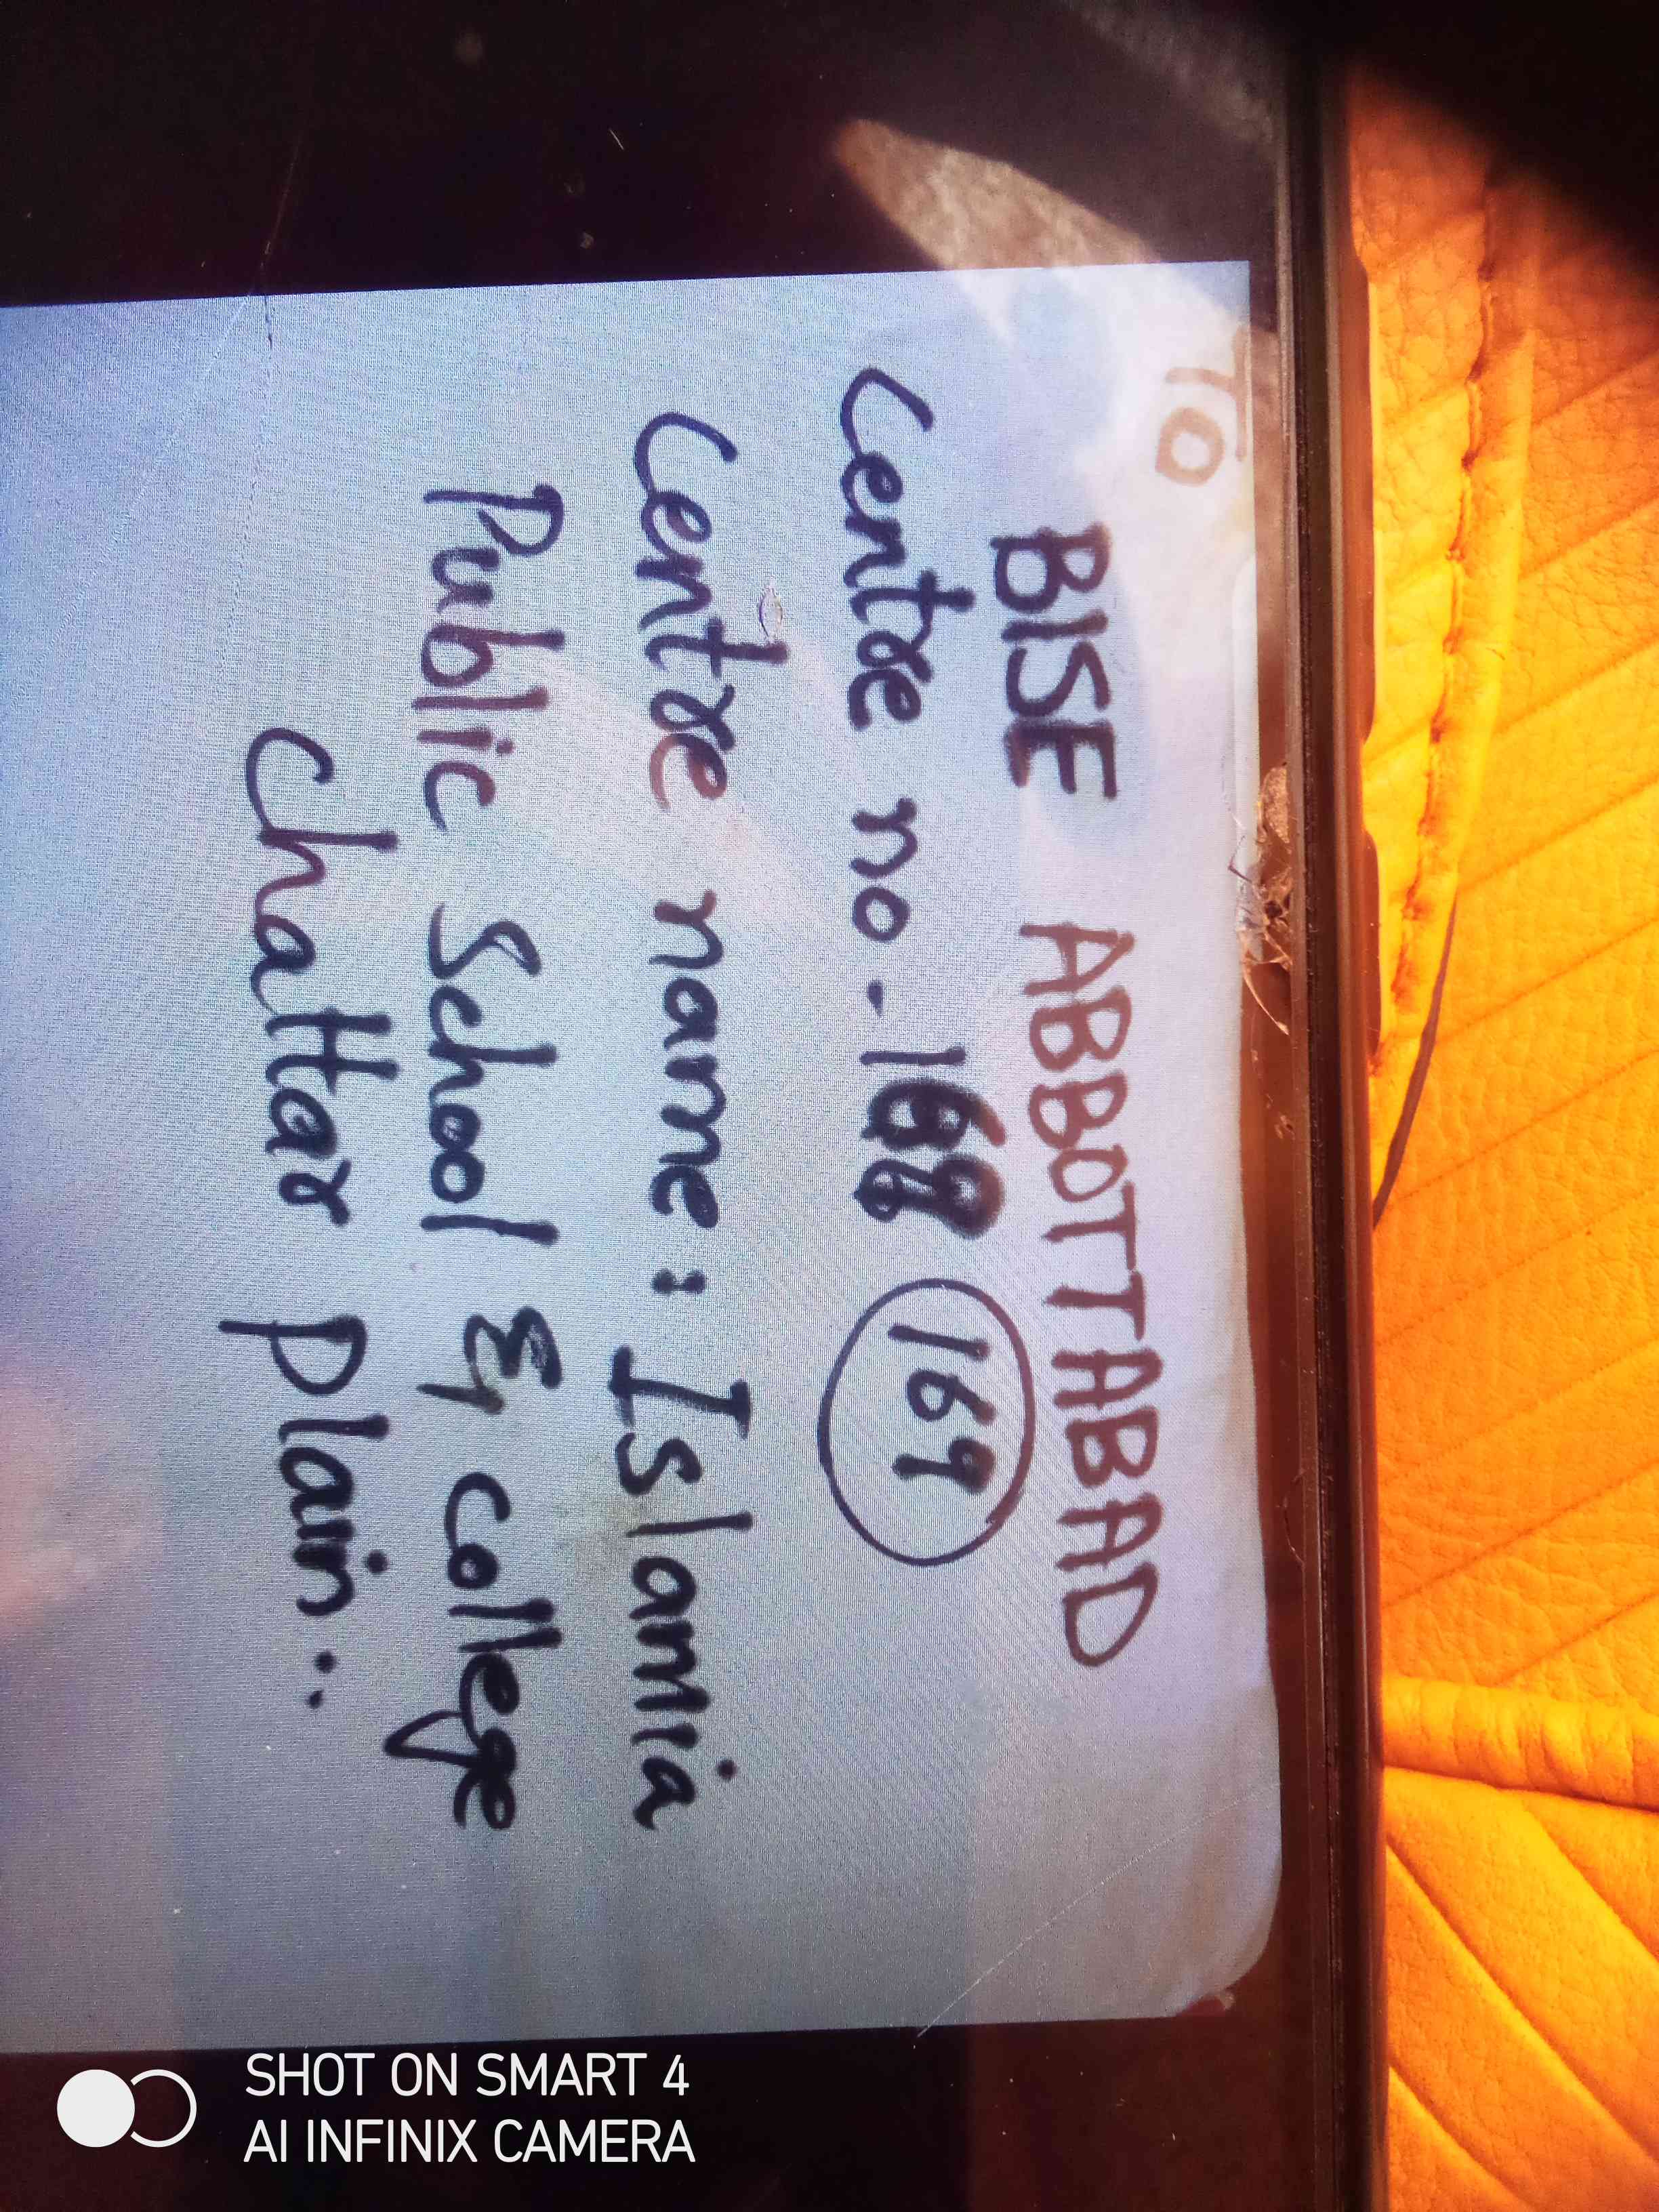 TO
BISE ABBOTTABAD
Centre no - 169
Centre name: Islamia
Public School & college
Chattar Plain..
SHOT ON SMART 4
AI INFINIX CAMERA